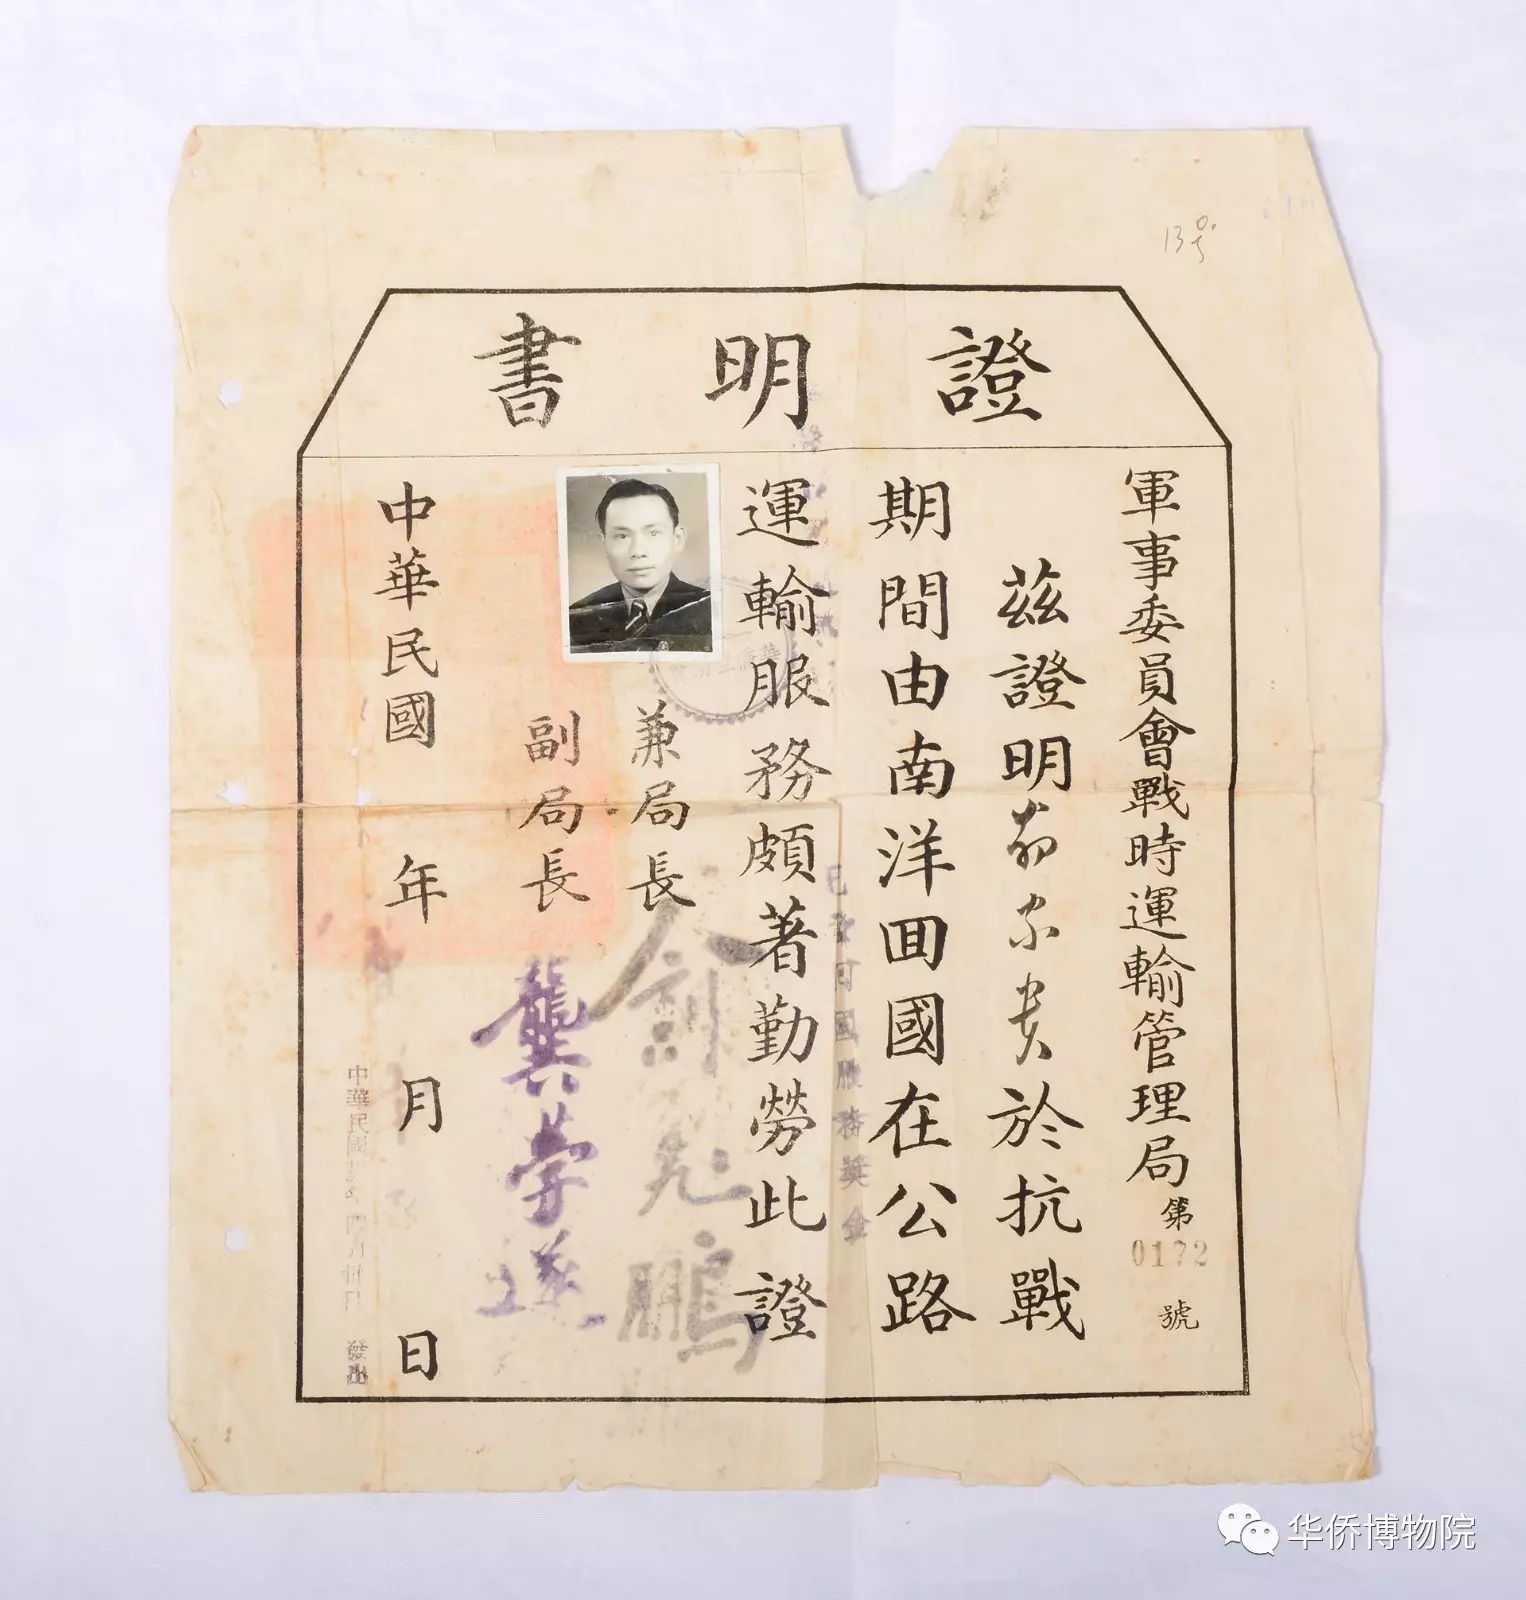 13号
證明書
軍事委員會戰時運輸管理局第0172號
茲證明翁家貴於抗戰
期間由南洋回國在公路
運輸服務頗著勤勞此證
兼局長 俞飛鵬
副局長 龔學遂
中華民國 年 月 日
中華民國 四月廿日 發出
回國服務獎金
华侨博物院